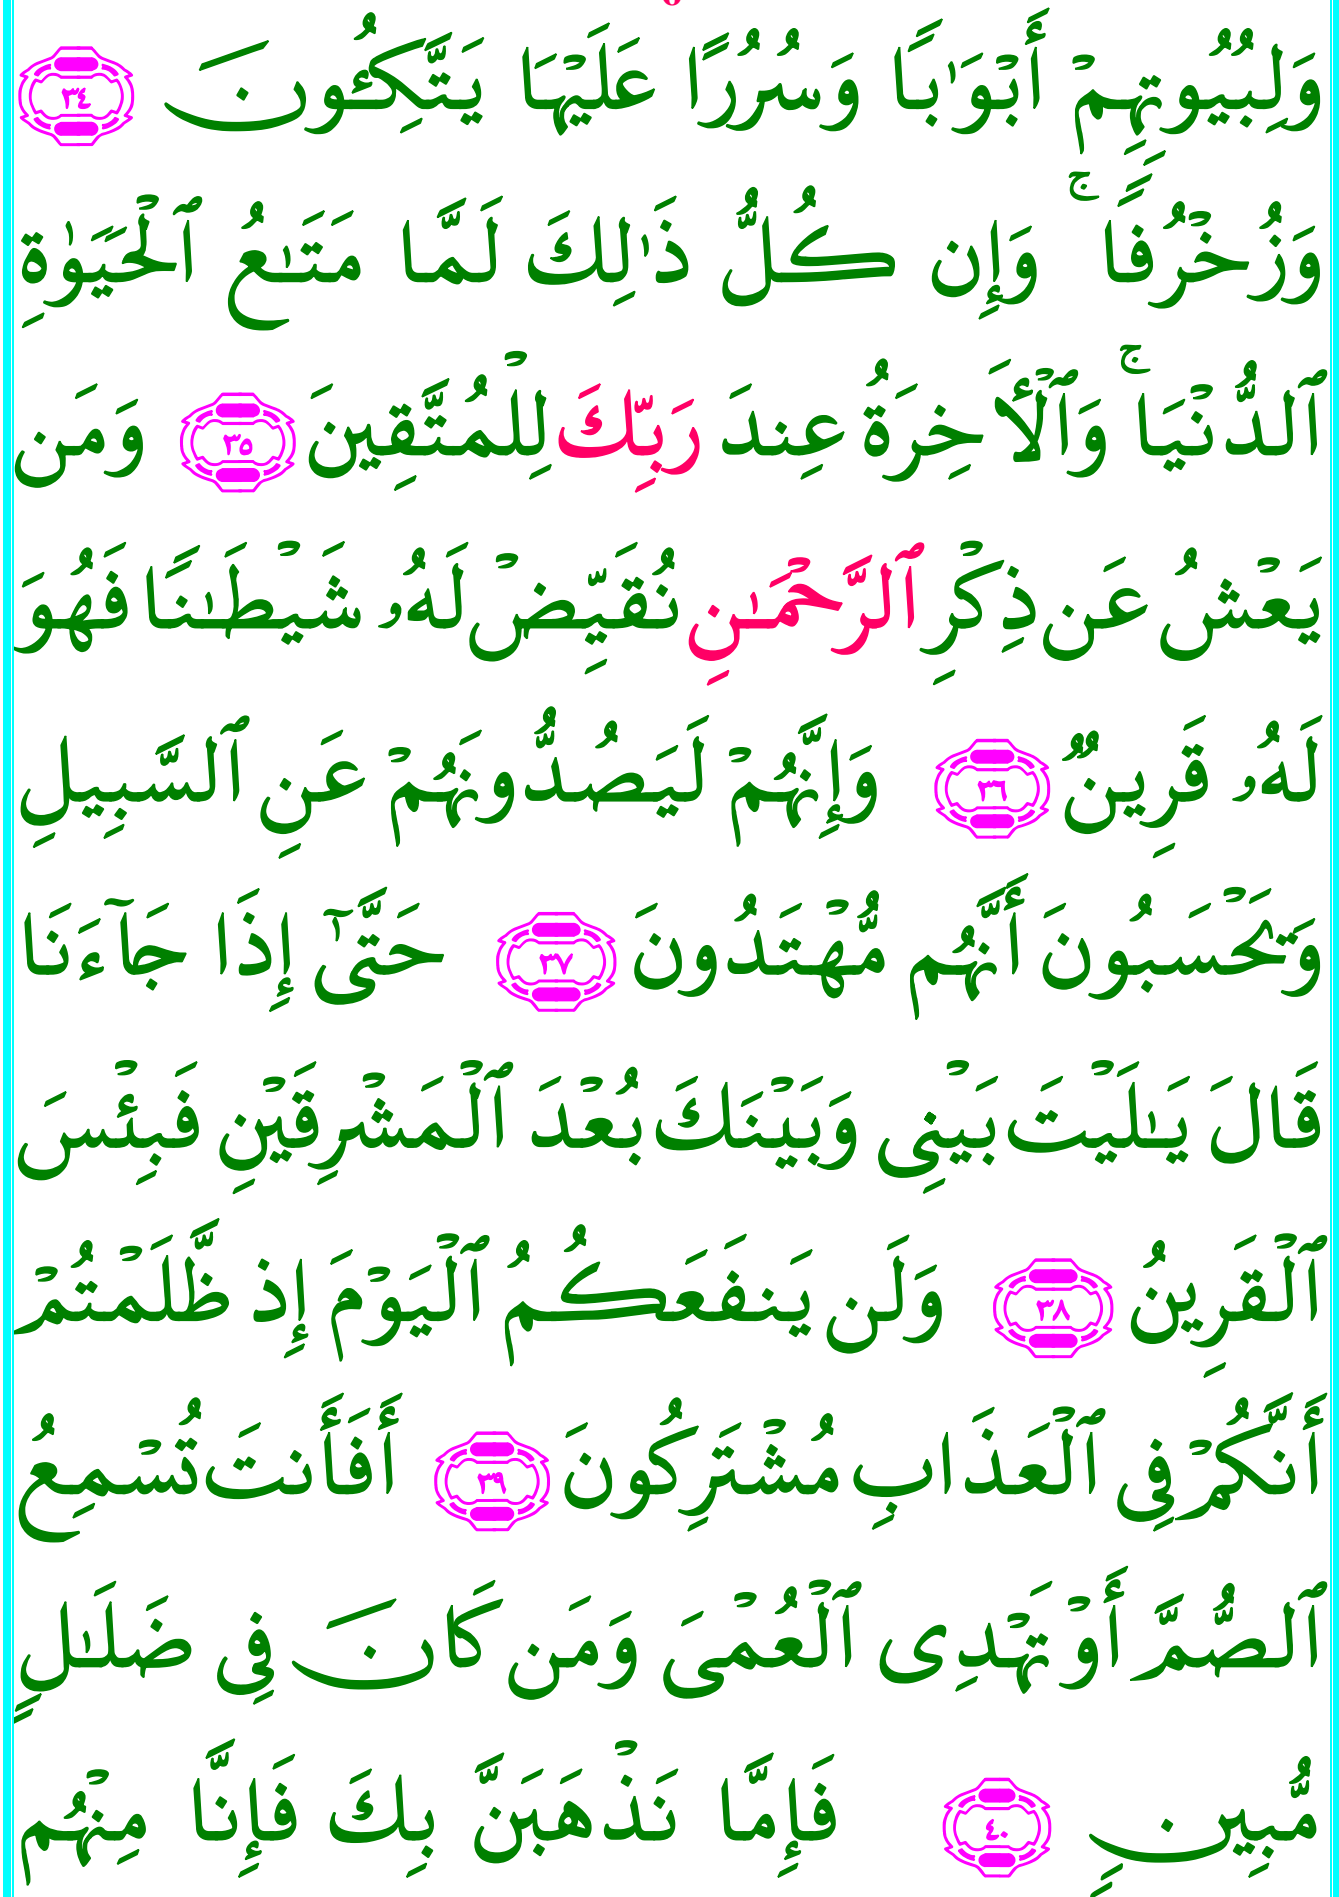 وَلِبُيُوتِهِمْ أَبْوَٰبًا وَسُرُرًا عَلَيْهَا يَتَّكِـُٔونَ ٣٤
وَزُخْرُفًا ۚ وَإِن كُلُّ ذَٰلِكَ لَمَّا مَتَـٰعُ ٱلْحَيَوٰةِ
ٱلدُّنْيَا ۚ وَٱلْأَخِرَةُ عِندَ رَبِّكَ لِلْمُتَّقِينَ ٣٥ وَمَن
يَعْشُ عَن ذِكْرِ ٱلرَّحْمَـٰنِ نُقَيِّضْ لَهُۥ شَيْطَـٰنًا فَهُوَ
لَهُۥ قَرِينٌ ٣٦ وَإِنَّهُمْ لَيَصُدُّونَهُمْ عَنِ ٱلسَّبِيلِ
وَيَحْسَبُونَ أَنَّهُم مُّهْتَدُونَ ٣٧ حَتَّىٰٓ إِذَا جَآءَنَا
قَالَ يَـٰلَيْتَ بَيْنِى وَبَيْنَكَ بُعْدَ ٱلْمَشْرِقَيْنِ فَبِئْسَ
ٱلْقَرِينُ ٣٨ وَلَن يَنفَعَكُمُ ٱلْيَوْمَ إِذ ظَّلَمْتُمْ
أَنَّكُمْ فِى ٱلْعَذَابِ مُشْتَرِكُونَ ٣٩ أَفَأَنتَ تُسْمِعُ
ٱلصُّمَّ أَوْ تَهْدِى ٱلْعُمْىَ وَمَن كَانَ فِى ضَلَـٰلٍ
مُّبِينٍ ٤٠ فَإِمَّا نَذْهَبَنَّ بِكَ فَإِنَّا مِنْهُم